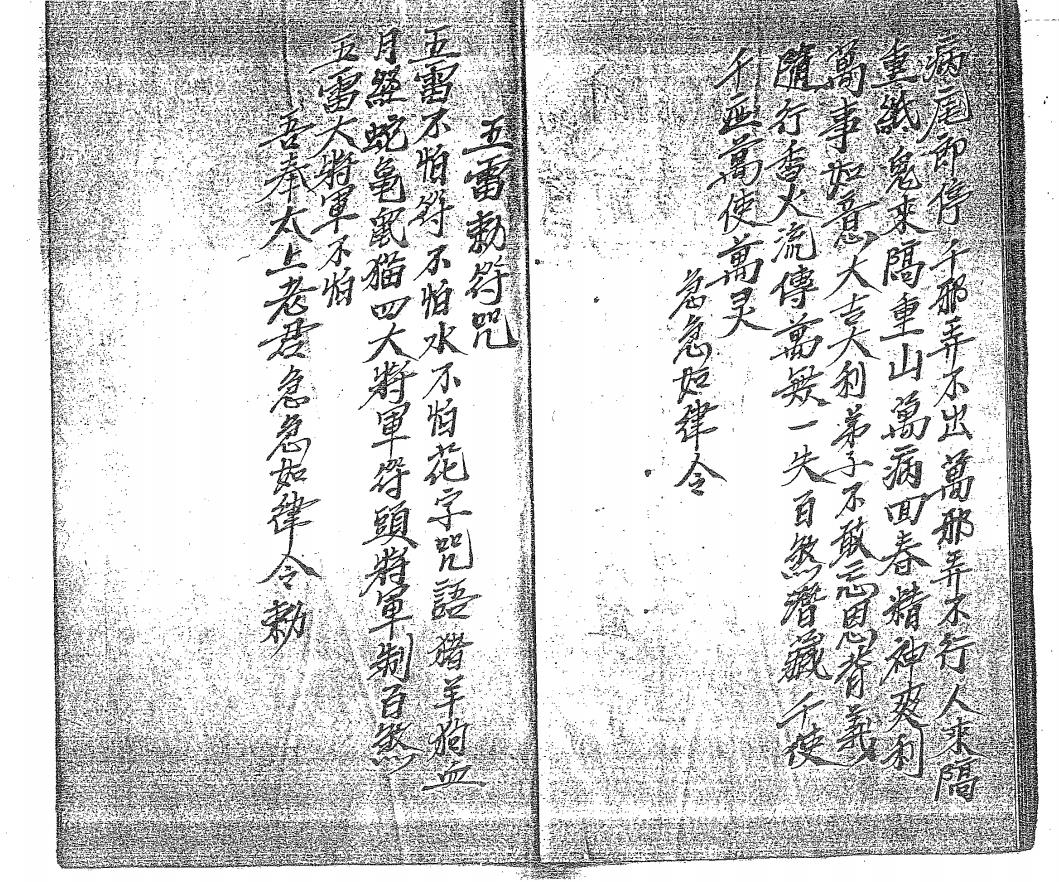 病厄即停千邪弄不出萬邪弄不行人來隔
重紙鬼來隔重山萬病回春精神爽利
萬事如意大吉大利弟子不敢忘恩背義
隨行香火流傳萬無一失百煞潛藏千使
千應萬使萬灵
急急如律令
五雷勅符咒
五雷不怕符不怕水不怕花字咒語豬羊狗血
月經蛇龜鼠猫四大將軍符頭將軍制百煞
五雷大將軍不怕
吾奉太上老君急急如律令勅